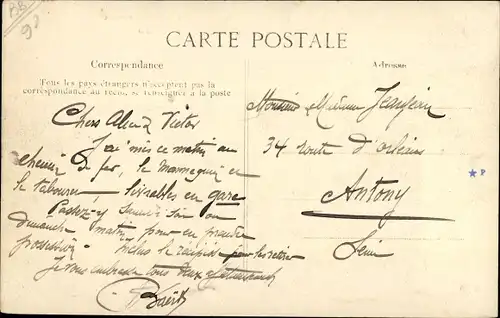 BB
90
CARTE POSTALE
Correspondance
Adresse
Tous les pays étrangers n'acceptent pas la
correspondance au recto, se renseigner à la poste
Chers Alice & Victor
J'ai mis ce matin au
chemin de fer, le mannequin et
le tabouret, livrables en gare
Passez-y samedi soir ou
dimanche matin pour en prendre
possession. Inclus le récépissé pour les retirer
Je vous embrasse tous deux
Monsieur & Madame
34 route d'Orléans
Antony
Seine
P